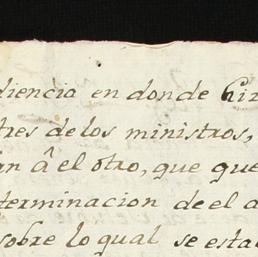 diencia en donde hiz
tres de los ministros,
an â el otro, que que
terminacion de el a
sobre lo qual se esta